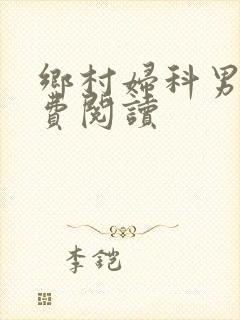 鄉村婦科男
費閱讀
李铠